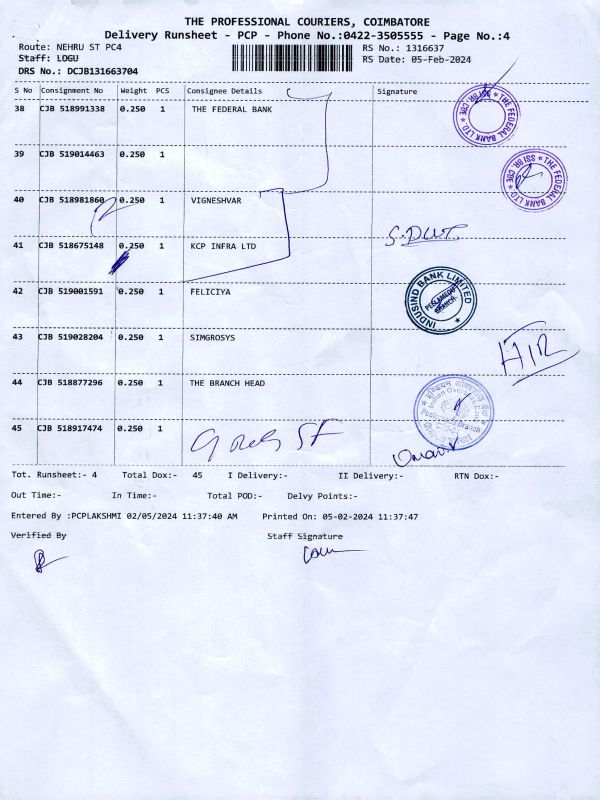 THE PROFESSIONAL COURIERS, COIMBATORE
Delivery Runsheet - PCP - Phone No.:0422-3505555 - Page No.:4
Route: NEHRU ST PC4 RS No.: 1316637
Staff: LOGU RS Date: 05-Feb-2024
DRS No.: DCJB131663704
S No Consignment No Weight PCS Consignee Details Signature
38 CJB 518991338 0.250 1 THE FEDERAL BANK
THE FEDERAL BANK LTD. SSI BR. CBE
39 CJB 519014463 0.250 1
THE FEDERAL BANK LTD. SSI BR. CBE
40 CJB 518981860 0.250 1 VIGNESHVAR
41 CJB 518675148 0.250 1 KCP INFRA LTD
42 CJB 519001591 0.250 1 FELICIYA
INDUSIND BANK LIMITED
BRANCH
43 CJB 519028204 0.250 1 SIMGROSYS
44 CJB 518877296 0.250 1 THE BRANCH HEAD
45 CJB 518917474 0.250 1
Tot. Runsheet:- 4 Total Dox:- 45 I Delivery:- II Delivery:- RTN Dox:-
Out Time:- In Time:- Total POD:- Delvy Points:-
Entered By :PCPLAKSHMI 02/05/2024 11:37:40 AM Printed On: 05-02-2024 11:37:47
Verified By Staff Signature